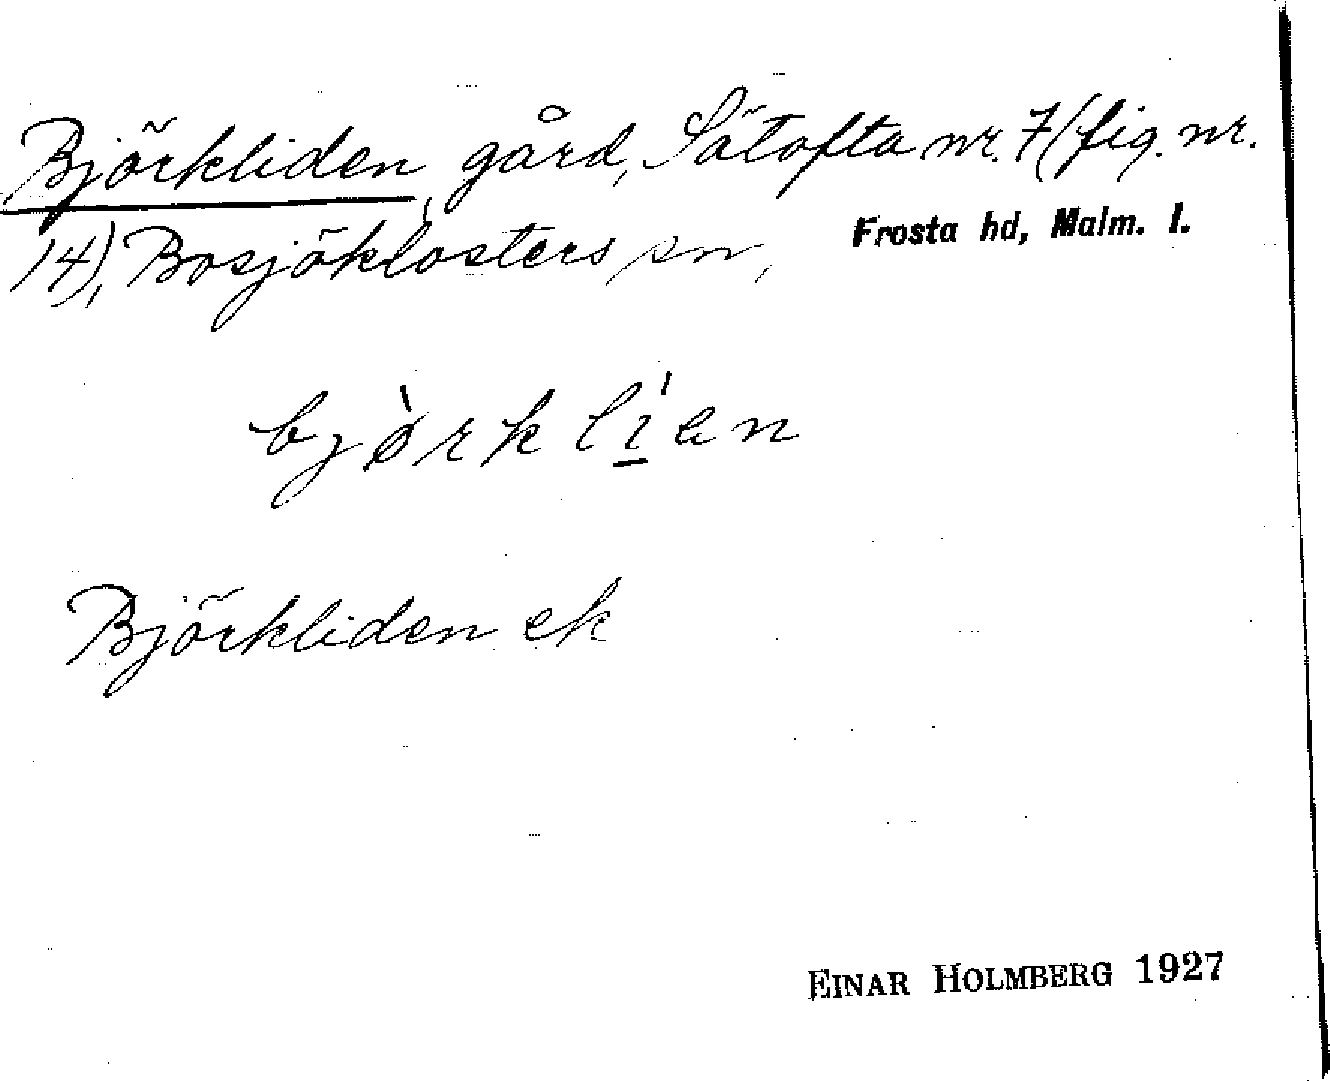 Björkliden, gård, Sätofta nr. 7 (fig. nr.
14), Bosjöklosters sn, Frosta hd, Malm. l.
bjø̀rklíen
Björkliden ek
EINAR HOLMBERG 1927